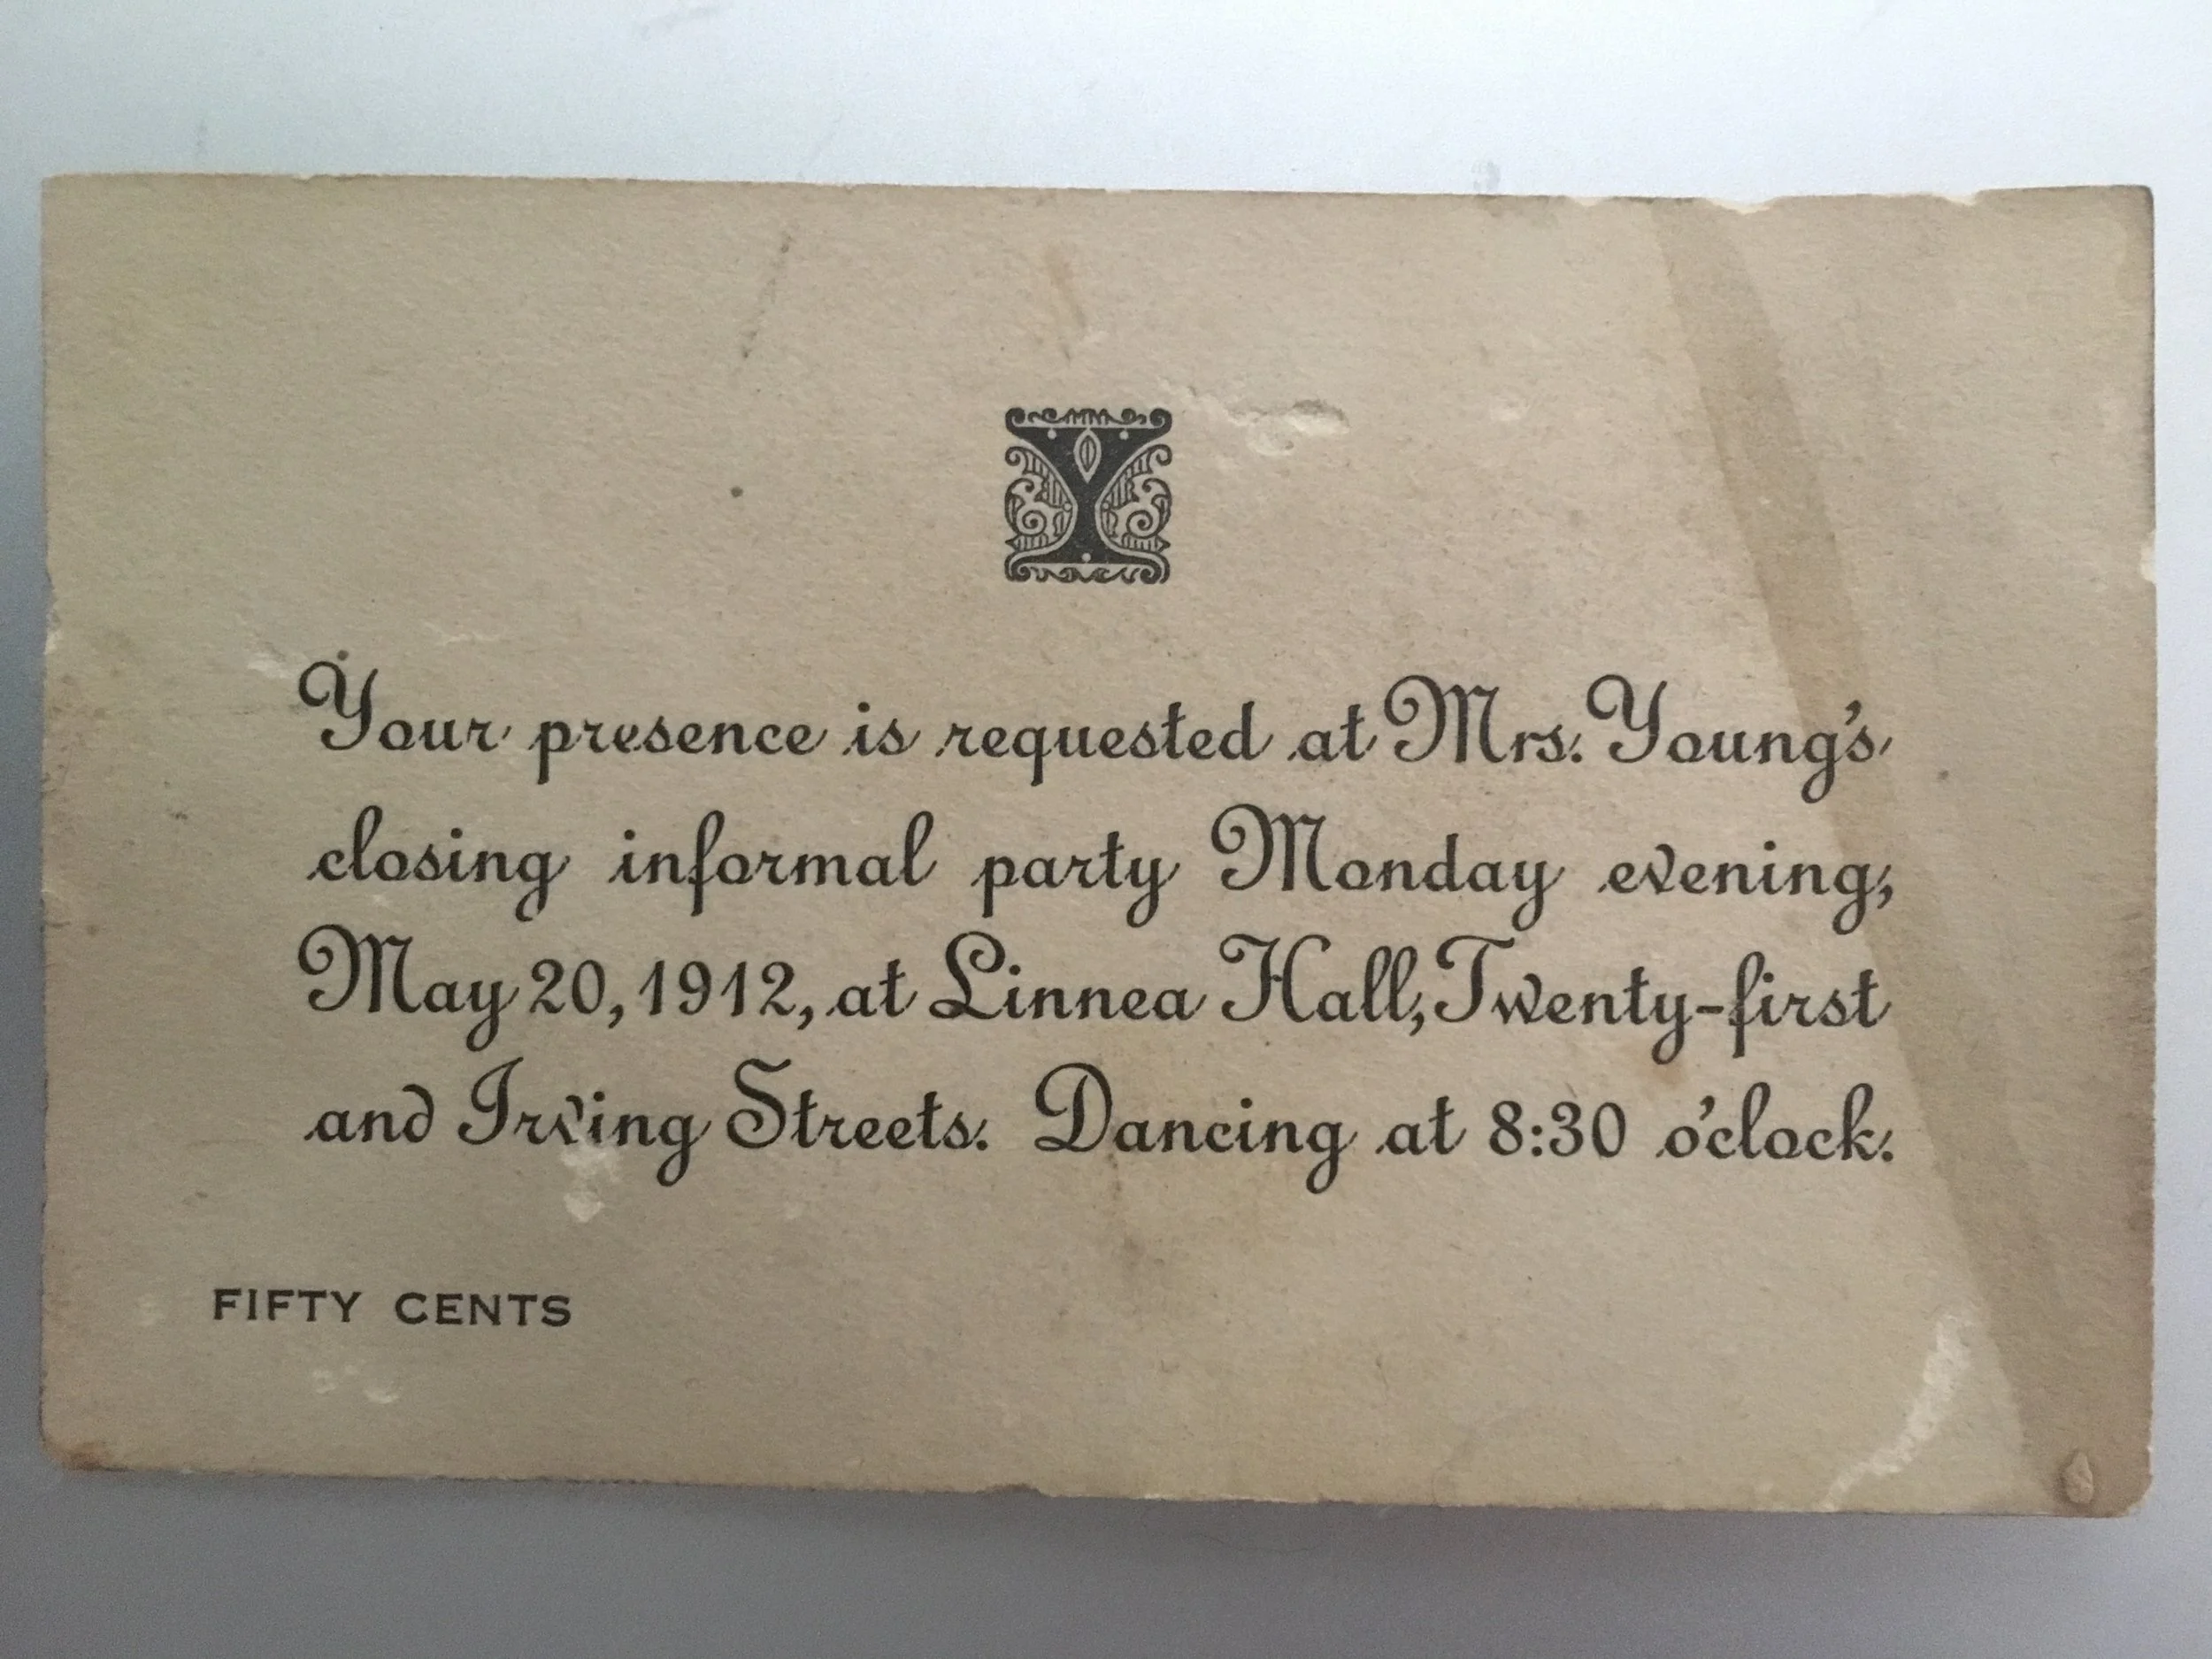 Y
Your presence is requested at Mrs. Young's
closing informal party Monday evening,
May 20, 1912, at Linnea Hall, Twenty-first
and Irving Streets. Dancing at 8:30 o'clock.
FIFTY CENTS